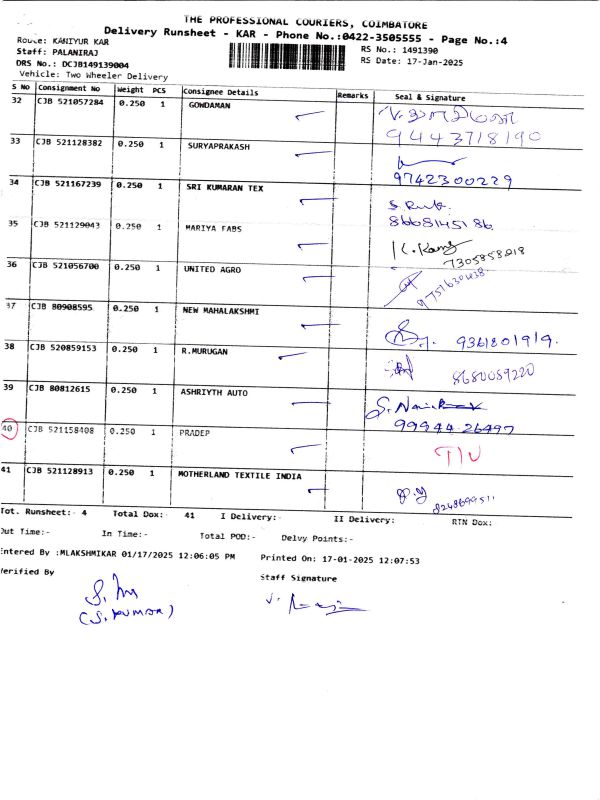 THE PROFESSIONAL COURIERS, COIMBATORE
Delivery Runsheet - KAR - Phone No.:0422-3505555 - Page No.:4
Route: KANIYUR KAR
RS No.: 1491390
Staff: PALANIRAJ
RS Date: 17-Jan-2025
DRS No.: DCJB149139004
Vehicle: Two Wheeler Delivery
S No Consignment No Weight PCS Consignee Details Remarks Seal & Signature
32 CJB 521057284 0.250 1 GOWDAMAN
9443718190
33 CJB 521128382 0.250 1 SURYAPRAKASH
9742300229
34 CJB 521167239 0.250 1 SRI KUMARAN TEX
8668145186
35 CJB 521129043 0.250 1 MARIYA FABS
7305858218
36 CJB 521056700 0.250 1 UNITED AGRO
9751630438
37 CJB 80908595 0.250 1 NEW MAHALAKSHMI
9361801919
38 CJB 520859153 0.250 1 R.MURUGAN
8680059220
39 CJB 80812615 0.250 1 ASHRIYTH AUTO
99944 26497
40 CJB 521158408 0.250 1 PRADEP
41 CJB 521128913 0.250 1 MOTHERLAND TEXTILE INDIA
8248699511
Tot. Runsheet:- 4 Total Dox: 41 I Delivery:- II Delivery: RTN Dox:
Out Time:- In Time:- Total POD:- Delvy Points:-
Entered By :MLAKSHMIKAR 01/17/2025 12:06:05 PM Printed On: 17-01-2025 12:07:53
Verified By Staff Signature
(S. KUMAR)